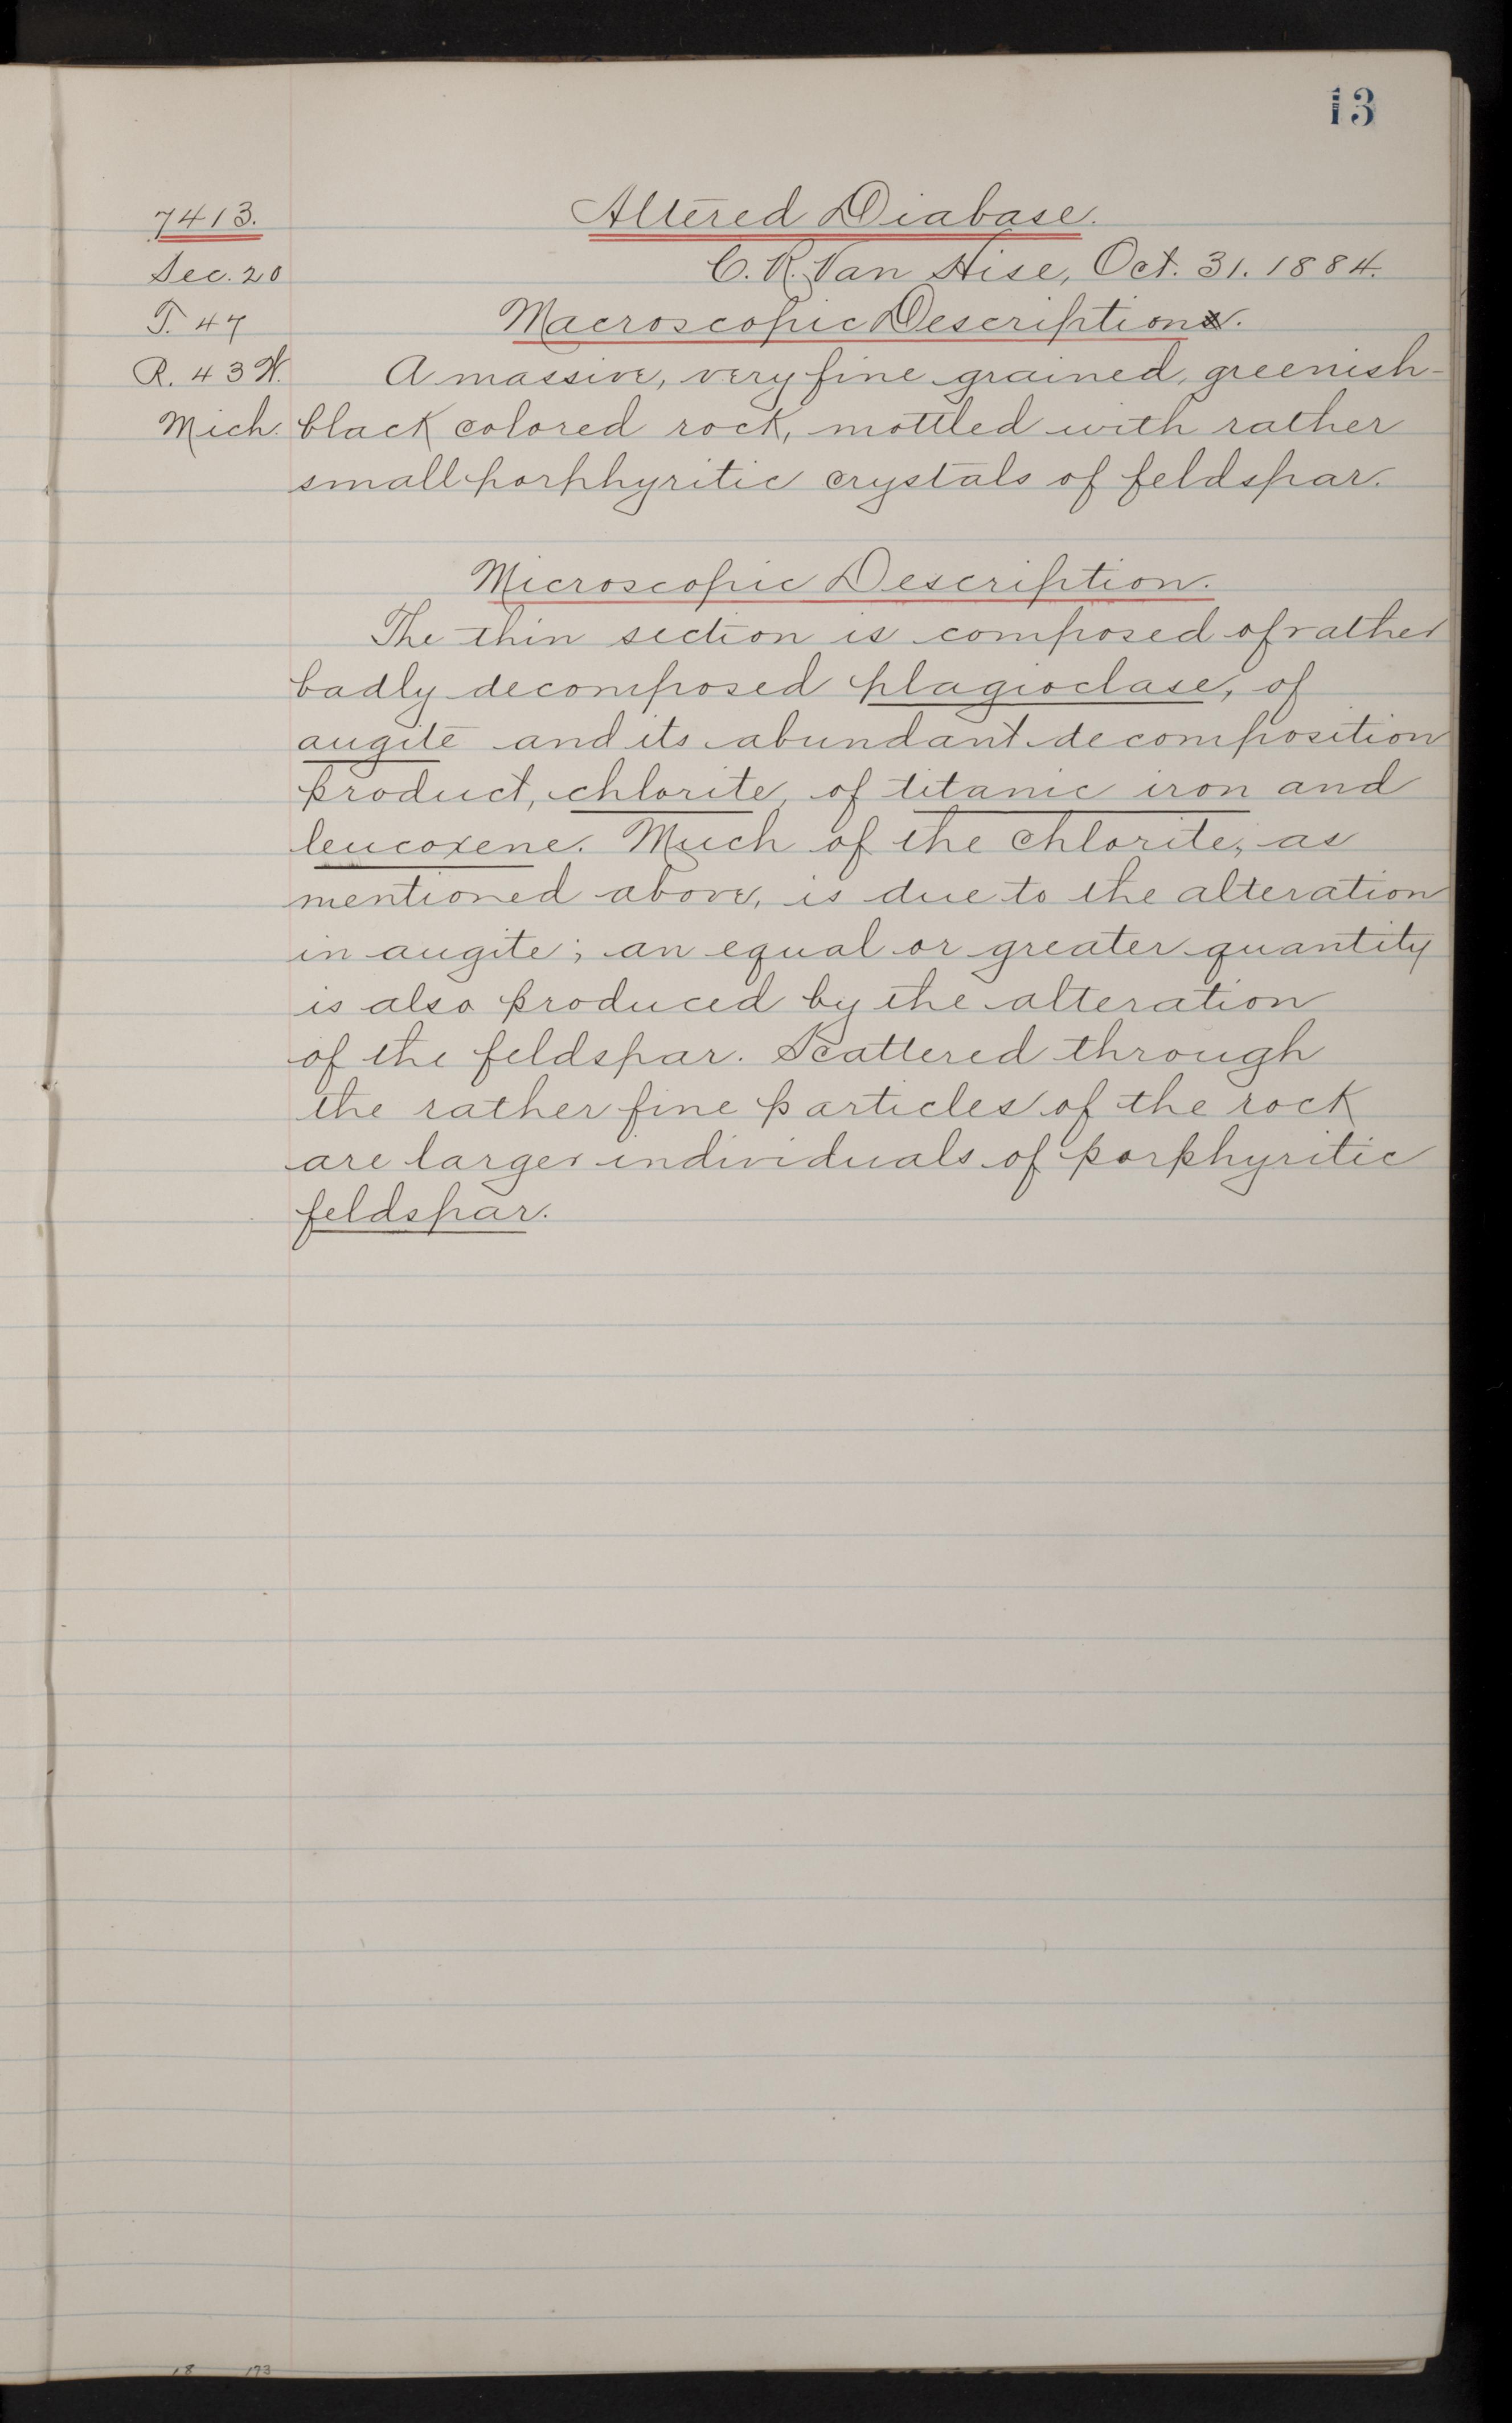 13
7413. Altered Diabase.
Sec. 20 C. R. Van Hise, Oct. 31. 1884.
T. 47 Macroscopic Description.
R. 43 W. A massive, very fine grained, greenish-
Mich. black colored rock, mottled with rather
small porphyritic crystals of feldspar.
Microscopic Description.
The thin section is composed of rather
badly decomposed plagioclase, of
augite and its abundant decomposition
product, chlorite, of titanic iron and
leucoxene. Much of the chlorite, as
mentioned above, is due to the alteration
in augite; an equal or greater quantity
is also produced by the alteration
of the feldspar. Scattered through
the rather fine particles of the rock
are larger individuals of porphyritic
feldspar.